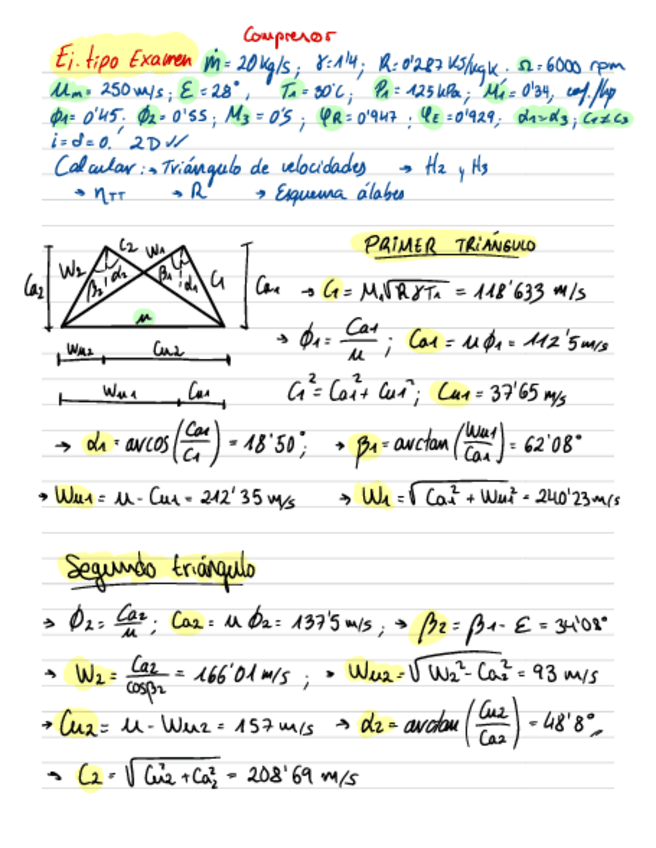 Compresor
Ej. tipo Examen ṁ = 20 kg/s; γ = 1'4; R = 0'287 KJ/kgK. Ω = 6000 rpm
Um = 250 m/s; ε = 28°, T1 = 30°C; P1 = 125 kPa; M1 = 0'34,
ϕ1 = 0'45; ϕ2 = 0'55; M3 = 0'5; φR = 0'947; φE = 0'929, α1 = α3; C1 ≠ C3
i = δ = 0. 2D
Calcular: → Triángulo de velocidades → H2 y H3
→ ηTT → R → Esquema álabes
PRIMER TRIÁNGULO
C2 W1
W2 β2 α2 β1 α1 C1
Ca2 Ca1
u
Wu2 Cu2
Wu1 Cu1
→ C1 = M1√RγT1 = 118'633 m/s
→ ϕ1 = Ca1/u ; Ca1 = u ϕ1 = 112'5 m/s
C1² = Ca1² + Cu1²; Cu1 = 37'65 m/s
→ α1 = arcos(Ca1/C1) = 18'50°; → β1 = arctan(Wu1/Ca1) = 62'08°
→ Wu1 = u - Cu1 = 212'35 m/s → W1 = √Ca1² + Wu1² = 240'23 m/s
Segundo triángulo
→ ϕ2 = Ca2/u ; Ca2 = u ϕ2 = 137'5 m/s ; → β2 = β1 - ε = 34'08°
→ W2 = Ca2/cosβ2 = 166'01 m/s ; → Wu2 = √W2² - Ca2² = 93 m/s
→ Cu2 = u - Wu2 = 157 m/s → α2 = arctan(Cu2/Ca2) = 48'8°
→ C2 = √Cu2² + Ca2² = 208'69 m/s